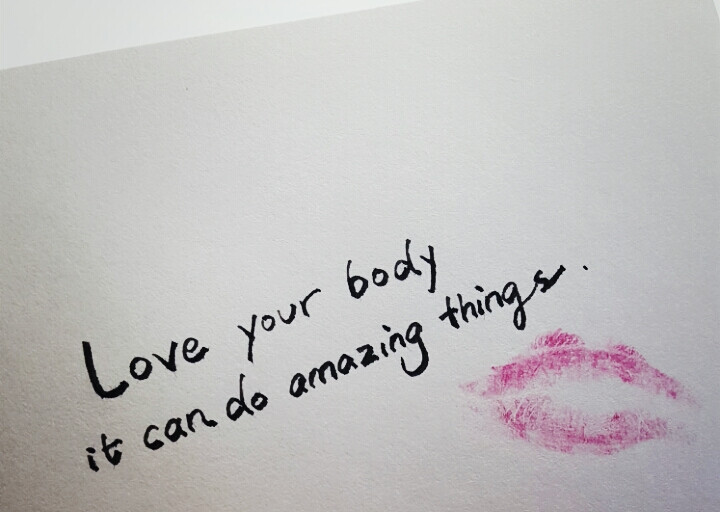 Love your body
it can do amazing things.